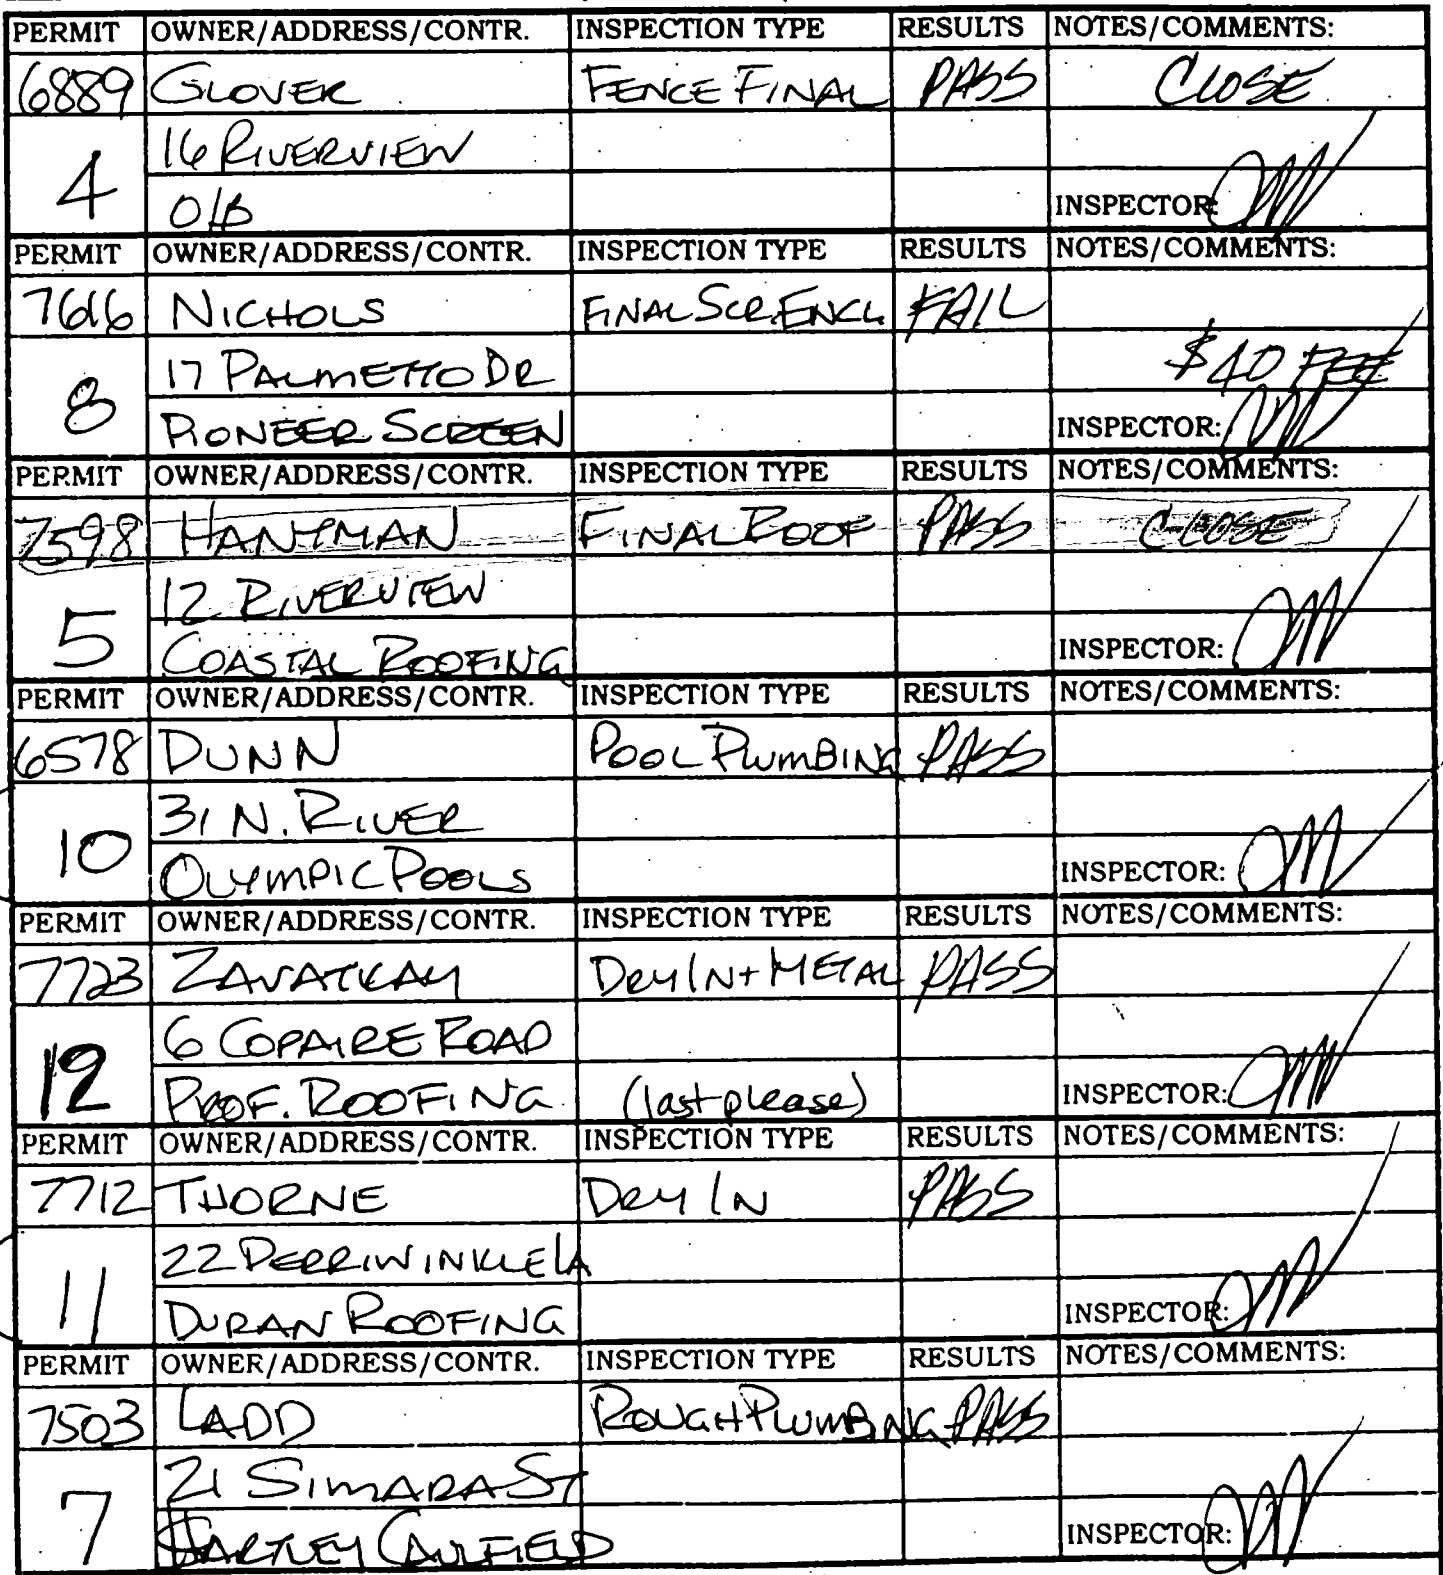 PERMIT OWNER/ADDRESS/CONTR. INSPECTION TYPE RESULTS NOTES/COMMENTS:
6889 GLOVER FENCE FINAL PASS CLOSE
4 16 RIVERVIEW
O/B INSPECTOR:
PERMIT OWNER/ADDRESS/CONTR. INSPECTION TYPE RESULTS NOTES/COMMENTS:
7616 NICHOLS FINAL SCR. ENCL FAIL
8 17 PALMETTO DR $40 FEE
PIONEER SCREEN INSPECTOR:
PERMIT OWNER/ADDRESS/CONTR. INSPECTION TYPE RESULTS NOTES/COMMENTS:
7598 FINAL ROOF PASS CLOSE
5 12 RIVERVIEW
COASTAL ROOFING INSPECTOR:
PERMIT OWNER/ADDRESS/CONTR. INSPECTION TYPE RESULTS NOTES/COMMENTS:
6578 DUNN POOL PLUMBING PASS
10 31 N. RIVER
OLYMPIC POOLS INSPECTOR:
PERMIT OWNER/ADDRESS/CONTR. INSPECTION TYPE RESULTS NOTES/COMMENTS:
7723 ZAVATKAY DRY IN + METAL PASS
12 6 COPAIRE ROAD
PROF. ROOFING (last please) INSPECTOR:
PERMIT OWNER/ADDRESS/CONTR. INSPECTION TYPE RESULTS NOTES/COMMENTS:
7712 THORNE DRY IN PASS
11 22 PERRIWINKLE LA
DURAN ROOFING INSPECTOR:
PERMIT OWNER/ADDRESS/CONTR. INSPECTION TYPE RESULTS NOTES/COMMENTS:
7503 LADD ROUGH PLUMBING PASS
7 21 SIMARA ST
HARTLEY CAULFIELD INSPECTOR: